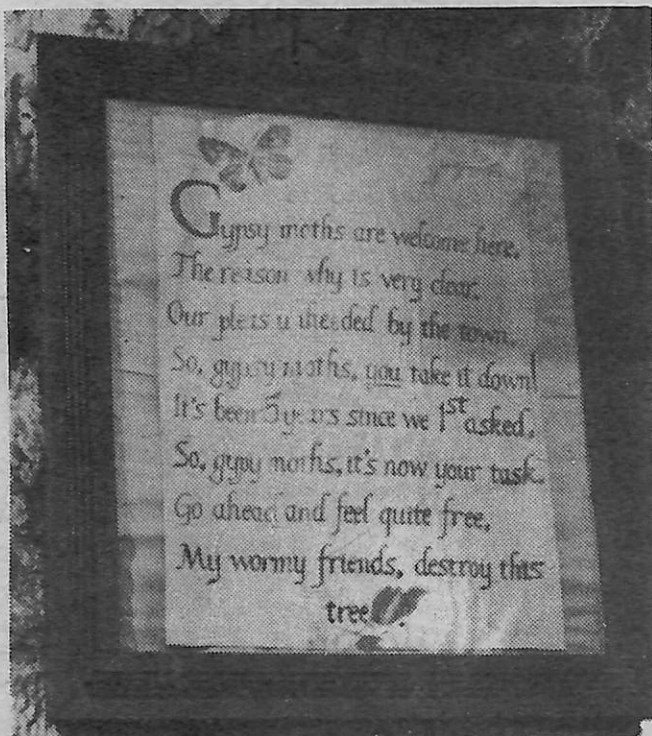 Gypsy moths are welcome here.
The reason why is very clear.
Our pleas unheeded by the town.
So, gypsy moths, you take it down!
It's been 5 years since we 1st asked.
So, gypsy moths, it's now your task.
Go ahead and feel quite free,
My wormy friends, destroy this
tree.